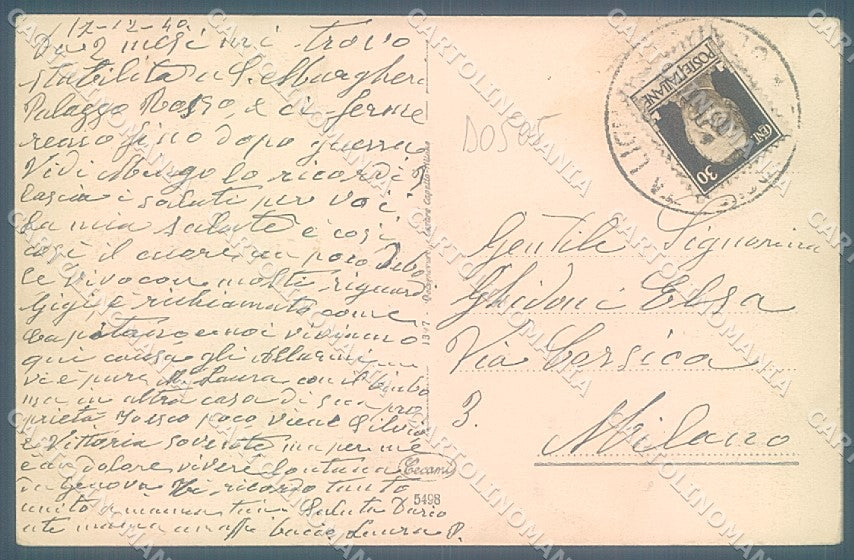 17-12-40
Da 2 mesi mi trovo
stabilita a S. Margher.
Palazzo Rosso, e ci ferme
remo fino dopo guerra
Vidi Mengo lo ricordi?
lascia i saluti per voi
La mia salute è così
così il cuore un poco debo
le vivo con molti riguardi
Gigi è richiamato come
Capitano e noi viviamo
qui causa gli Allarmi
vi è pure M. Laura con bimbo
ma in altra casa di sua pro
prietà Tosco poco viene Silvio
e Vittoria sovente ma per me
è un dolore vivere lontana
da Genova Vi ricordo tanto
unito a mamma tua Saluta Dario
baci Laura P.
DOS505
POSTE ITALIANE
CENT 30
Gentile Signorina
Ghidoni Elsa
Via Corsica
3.
Milano
1347
Cecami
5498
CARTOLINOMANIA